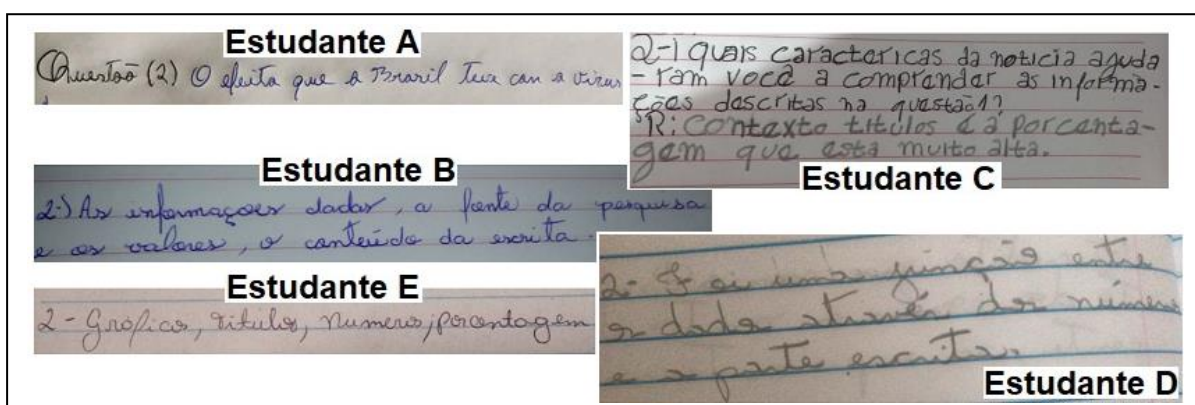 Estudante A
Questão (2) O efeito que o Brasil teve com o vírus
Estudante B
2-) As informações dadas, a fonte da pesquisa
e os valores, o conteúdo da escrita.
Estudante E
2 - Gráficos, titulos, numeros, porcentagem
2-) quais caractericas da noticia aguda
-ram você a comprender as informa-
ções descritas na questão1?
R: Contexto titulos e a porcenta-
gem que esta muito alta.
Estudante C
2- Foi uma junção entre
os dados através dos números
e a parte escrita.
Estudante D